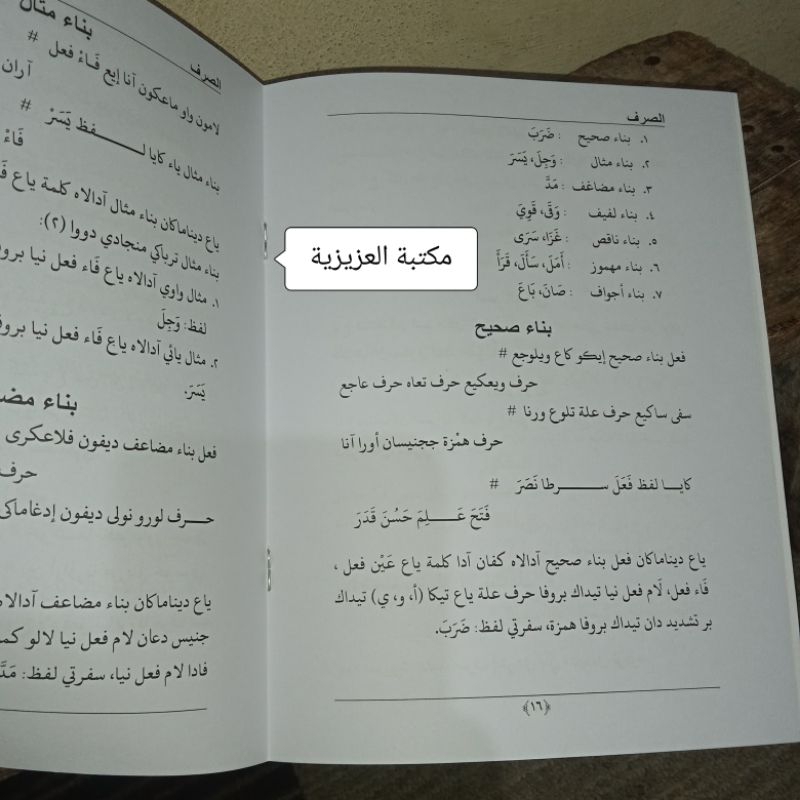 الصرف
١. بناء صحيح : ضَرَبَ
٢. بناء مثال : وَجِلَ، يَسَرَ
٣. بناء مضاغف : مَدَّ
٤. بناء لفيف : وَقَى، قَوِيَ
٥. بناء ناقص : غَزَا، سَرَى
٦. بناء مهموز : أَمَلَ، سَأَلَ، قَرَأَ
٧. بناء أجواف : صَانَ، بَاعَ
بناء صحيح
فعل بناء صحيح إيكو كاع ويلوجع #
حرف ويعكيع حرف تعاه حرف عاجع
سفى ساكيع حرف علة تلوع ورنا #
حرف همْزة ججنيسان أورا آنا
كايـا لفظ فَعَلَ ســرطا نَصَرَ #
فَتَحَ عَــلِمَ حَسُنَ قَدَرَ
ياع ديناماكان فعل بناء صحيح آدالاه كفان آدا كلمة ياع عَيْن فعل ،
فَاء فعل، لَام فعل نيا تيداك بروفا حرف علة ياع تيكا (أ، و، ي) تيداك
بر تشديد دان تيداك بروفا همزة، سفرتي لفظ: ضَرَبَ.
﴿١٦﴾
مكتبة العزيزية
الصرف
بناء مثال
لامون واو ماعكون آنا إيع فَاءْ فعل #
آران
بناء مثال ياء كايا لــفظ يَسَرْ #
فَاءْ
ياع ديناماكان بناء مثال آدالاه كلمة ياع
بناء مثال ترباكي منجادي دووا (٢):
١. مثال واوي آدالاه ياع فَاء فعل نيا بروف
لفظ: وَجِلَ
٢. مثال يائي آدالاه ياع فَاء فعل نيا بروف
يَسَرَ.
بناء مضا
فعل بناء مضاعف ديفون فلاعكرى
حرف
حــرف لورو نولى ديفون إدغاماكى
ياع ديناماكان بناء مضاعف آدالا
جنيس دعان لام فعل نيا لالو كمـ
فادا لام فعل نيا، سفرتي لفظ: مَدَّ